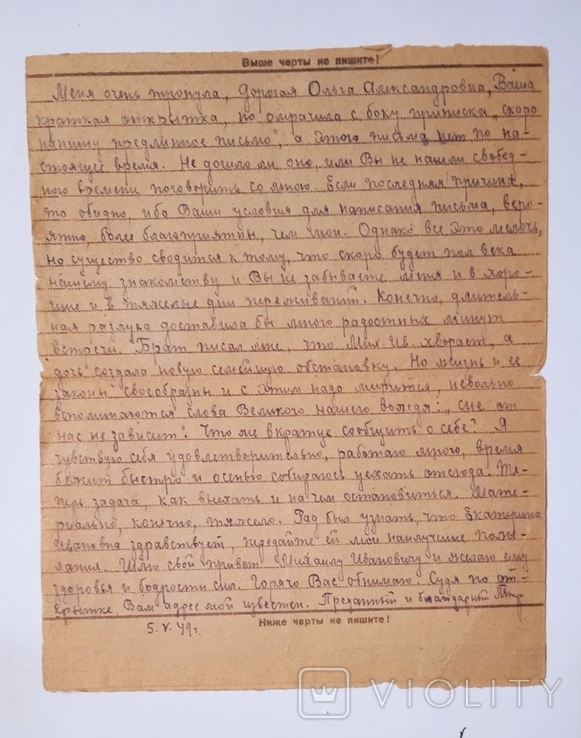 Выше черты не пишите!
Меня очень тронула, дорогая Ольга Александровна, Ваша
краткая открытка, но омрачила с боку приписка "скоро
напишу предлинное письмо", а этого письма нет по на-
стоящее время. Не дошло ли оно, или Вы не нашли свобод-
ного времени поговорить со мною. Если последняя причина,
то обидно, ибо Ваши условия для написания письма, веро-
ятно, более благоприятны, чем мои. Однако все это мелочь,
но существо сводится к тому, что скоро будет пол века
нашему знакомству и Вы не забываете меня и в хоро-
шие и в тяжелые дни переживаний. Конечно, длитель-
ная разлука доставила бы много радостных минут
встречи. Брат писал мне, что Мих. Ив. хворает, а
дочь создала новую семейную обстановку. Но жизнь и ее
законы своеобразны и с этим надо мирится, невольно
вспоминаются слова Великого нашего вождя: "сие от
нас не зависит". Что же вкратце сообщить о себе? Я
чувствую себя удовлетворительно, работаю много, время
бежит быстро и осенью собираюсь уехать отсюда. Те-
перь задача, как выехать и на чем остановиться. Мате-
риально, конечно, тяжело. Рад был узнать, что Екатерина
Ивановна здравствует, передайте ей мои наилучшие поже-
лания. Шлю свой привет Михаилу Ивановичу и желаю ему
здоровья и бодрости сил. Горячо Вас обнимаю. Судя по от-
крытке, Вам адрес мой известен. Преданный и благодарный
Ниже черты не пишите!
5. V. 49 г.
VIOLITY